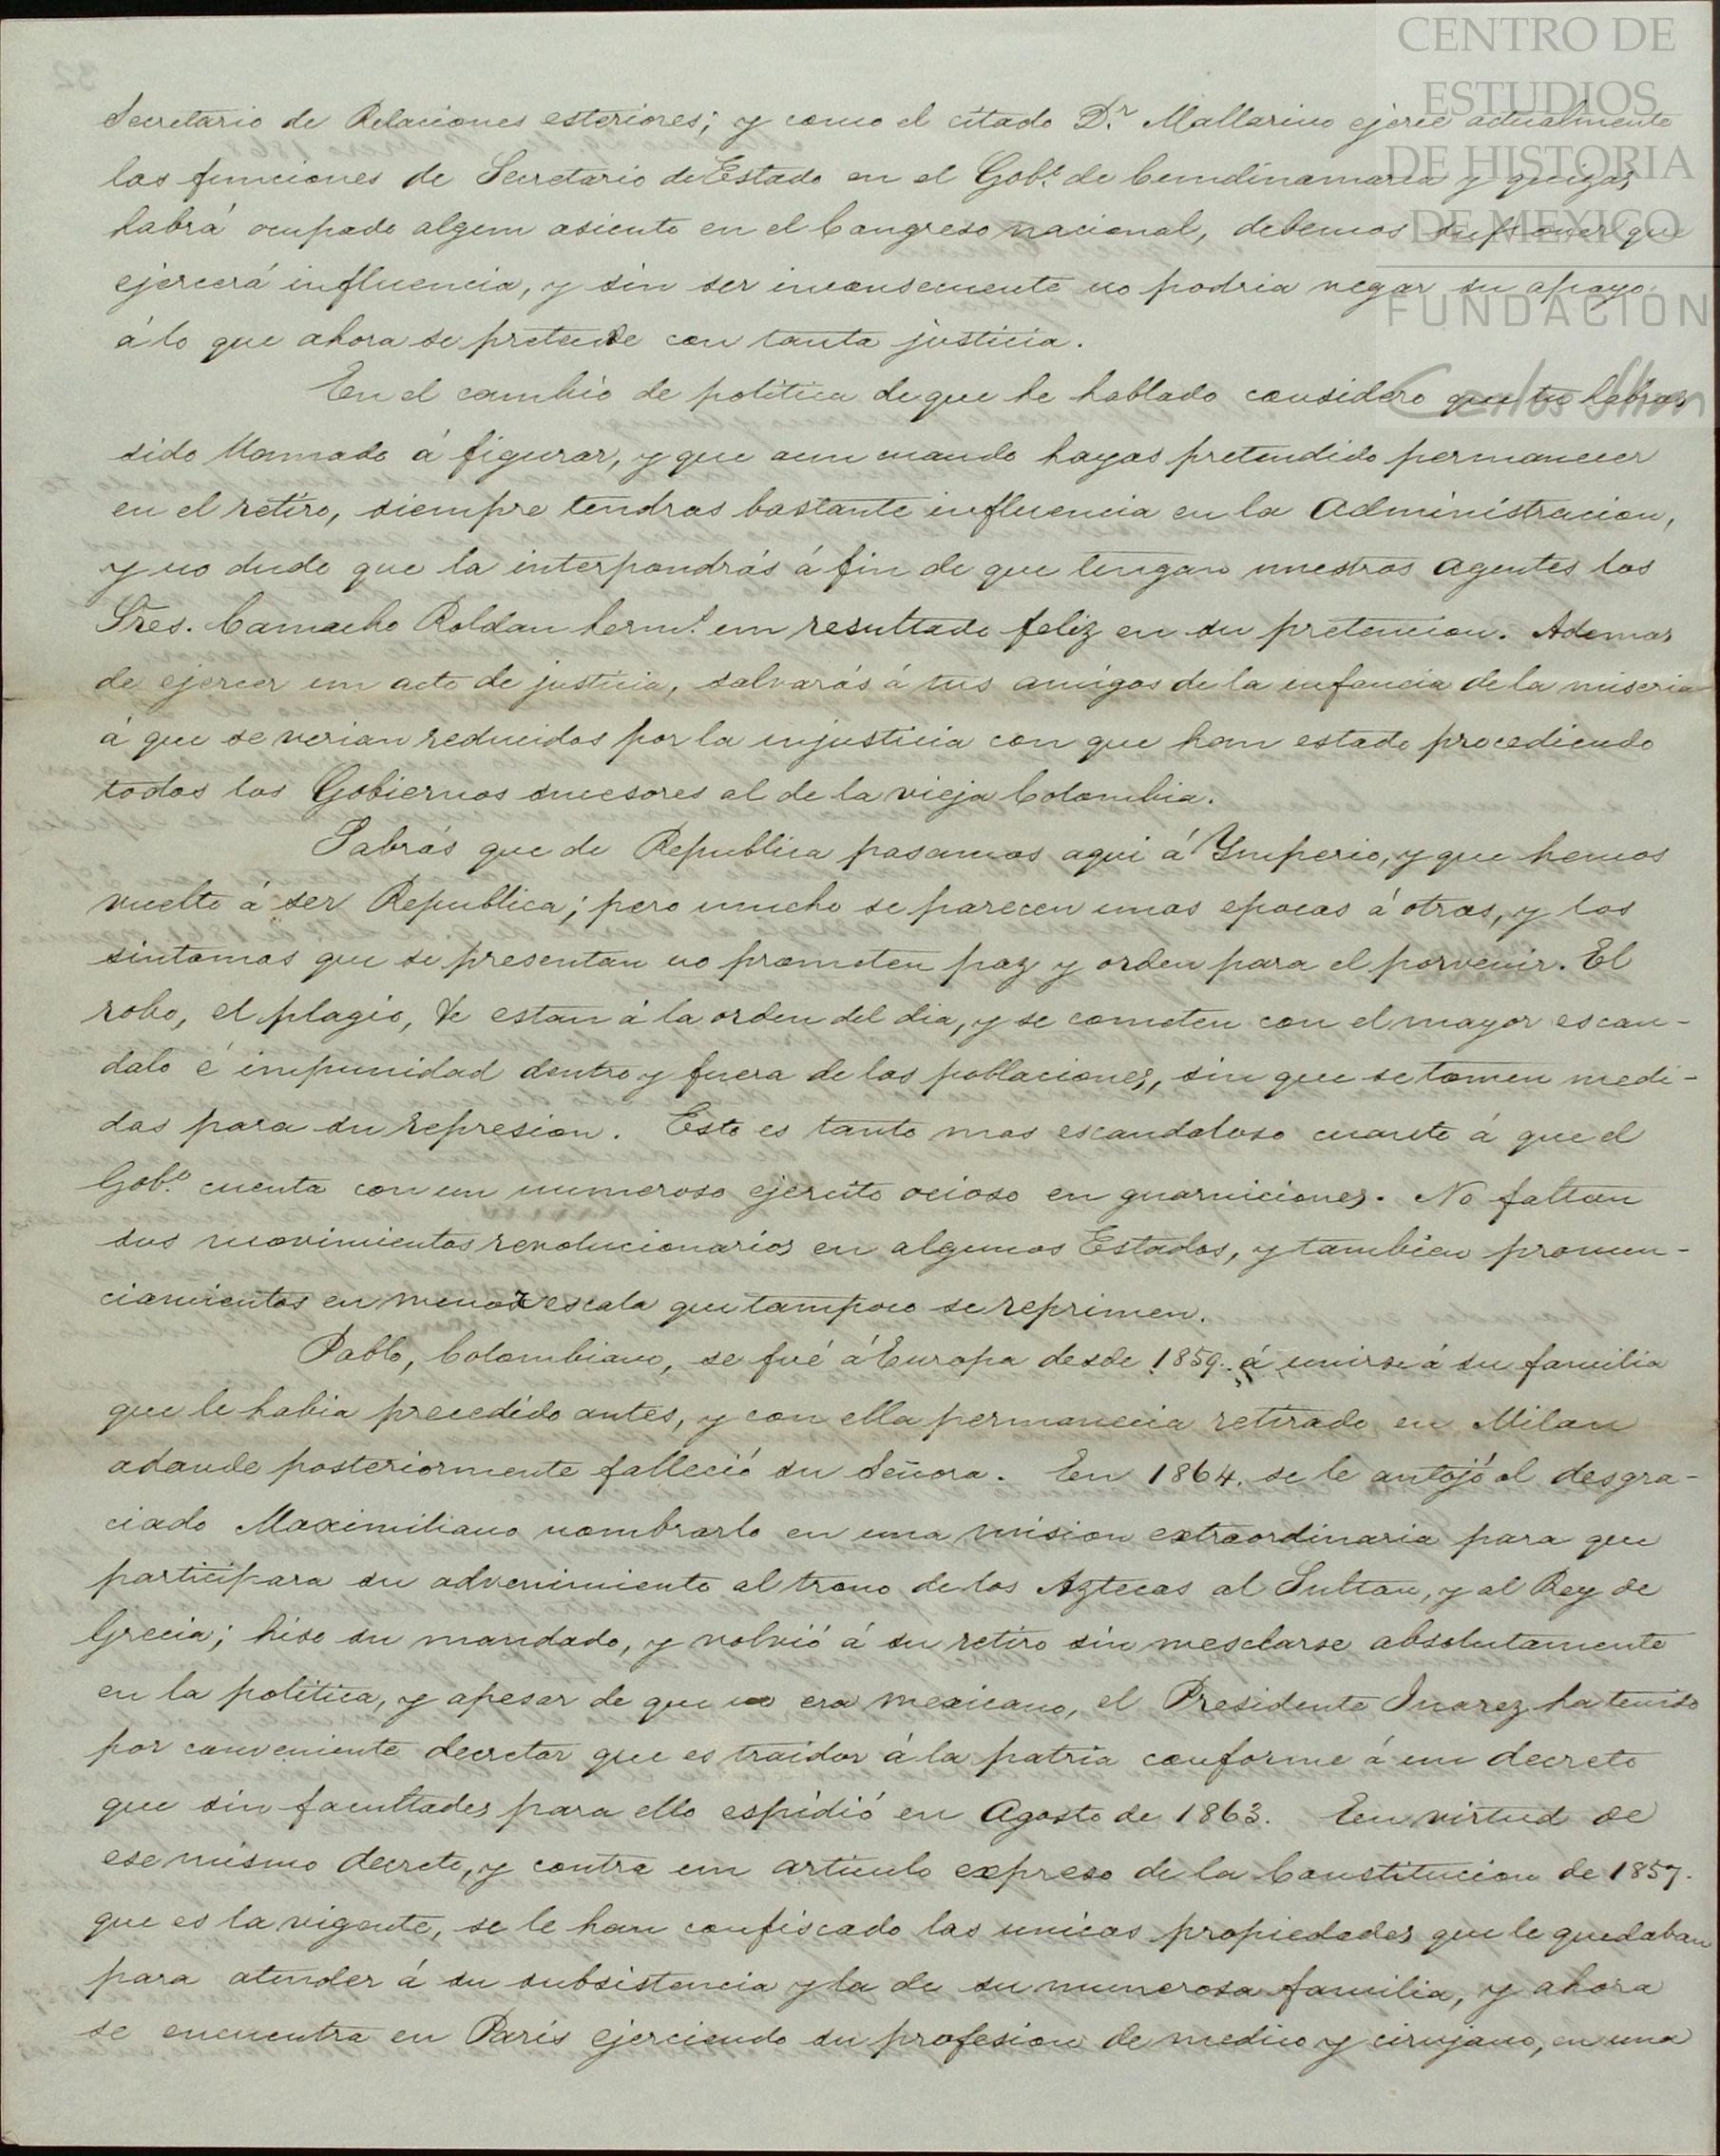 CENTRO DE
ESTUDIOS
DE HISTORIA
DE MEXICO
FUNDACIÓN
Carlos Slim
32
Secretario de Relaciones esteriores; y como el citado D.r Mallarino ejerce actualmente
las funciones de Secretario de Estado en el Gob.o de Cundinamarca y quizas
habrá ocupado algun asiento en el Congreso nacional, debemos suponer que
ejercerá influencia, y sin ser inconsecuente no podria negar su apoyo
á lo que ahora se pretende con tanta justicia.
En el cambio de politica de que he hablado considero que tu habras
sido llamado á figurar, y que aun cuando hayas pretendido permanecer
en el retiro, siempre tendras bastante influencia en la Administracion,
y no dudo que la interpondrás á fin de que tengan nuestros agentes los
Sres. Camacho Roldan herm.s un resultado feliz en su pretencion. Ademas
de ejercer un acto de justicia, salvarás á tus amigos de la infancia de la miseria
á que se verian reducidos por la injusticia con que han estado procediendo
todos los Gobiernos sucesores al de la vieja Colombia.
Sabrás que de Republica pasamos aqui á Ymperio, y que hemos
vuelto á ser Republica; pero mucho se parecen unas epocas á otras, y los
sintomas que se presentan no prometen paz y orden para el porvenir. El
robo, el plagio, &c estan á la orden del dia, y se cometen con el mayor escan-
dalo é impunidad dentro y fuera de las poblaciones, sin que se tomen medi-
das para su represion. Esto es tanto mas escandaloso cuanto á que el
Gob.o cuenta con un numeroso ejercito ocioso en guarniciones. No faltan
sus movimientos revolucionarios en algunos Estados, y tambien pronun-
ciamientos en menor escala que tampoco se reprimen.
Pablo, Colombiano, se fué á Europa desde 1859. á unirse á su familia
que le habia precedido antes, y con ella permanecia retirado en Milan
adonde posteriormente falleció su Señora. En 1864. se le antojó al desgra-
ciado Maximiliano nombrarlo en una mision extraordinaria para que
participara su advenimiento al trono de los Aztecas al Sultan, y al Rey de
Grecia; hiso su mandado, y volvió á su retiro sin mesclarse absolutamente
en la politica, y apesar de que no era mexicano, el Presidente Juarez ha tenido
por conveniente decretar que es traidor á la patria conforme á un decreto
que sin facultades para ello espidió en Agosto de 1863. En virtud de
ese mismo decreto, y contra un articulo expreso de la Constitucion de 1857.
que es la vigente, se le han confiscado las unicas propiedades que le quedaban
para atender á su subsistencia y la de su numerosa familia, y ahora
se encuentra en Paris ejerciendo su profesion de medico y cirujano, en una